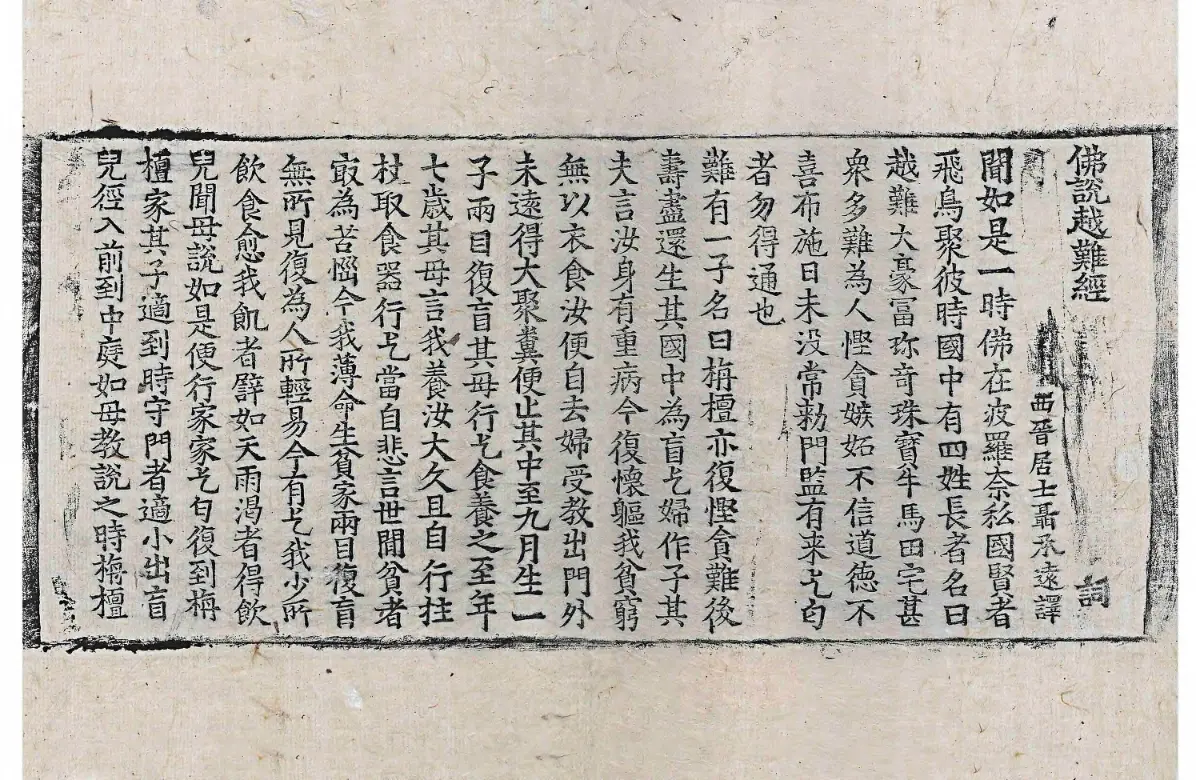 佛說越難經
詞
西晉居士聶承遠譯
聞如是一時佛在波羅奈私國賢者
飛鳥聚彼時國中有四姓長者名曰
越難大豪富珎竒珠寶牛馬田宅甚
衆多難為人慳貪嫉妬不信道德不
喜布施日未没常勑門監有来乞匃
者勿得通也
難有一子名曰栴檀亦復慳貪難後
壽盡還生其國中為盲乞婦作子其
夫言汝身有重病今復懷軀我貧窮
無以衣食汝便自去婦受教出門外
未遠得大聚糞便止其中至九月生一
子兩目復盲其母行乞食養之至年
七歲其母言我養汝大久且自行拄
杖取食器行乞當自悲言世間貧者
㝡為苦惱今我薄命生貧家兩目復盲
無所見復為人所輕易今有乞我少所
飲食愈我飢者譬如天雨渴者得飲
兒聞母說如是便行家家乞匃復到栴
檀家其子適到時守門者適小出盲
兒徑入前到中庭如母教說之時栴檀